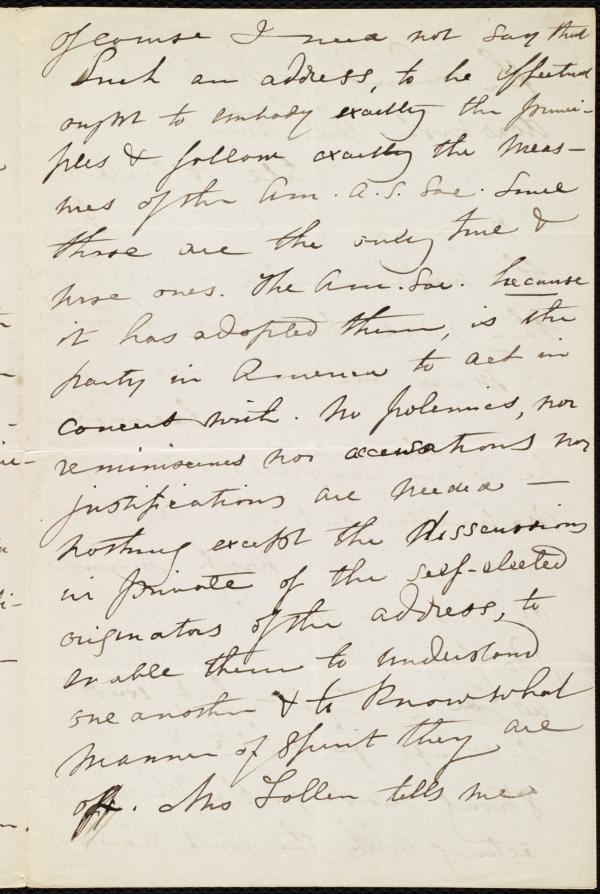 of course I need not say that
Such an address, to be effectual
ought to embody exactly the princi-
ples & follow exactly the meas-
ures of the Am. A. S. Soc. Since
those are the only true &
wise ones. The Am. Soc. because
it has adopted them, is the
party in America to act in
concert with. No polemics, nor
reminiscences nor accusations nor
justifications are needed —
nothing except the disscussions
in private of the self-elected
originators of the address, to
enable them to understand
one another & to know what
manner of Spirit they are
of. Mrs Follen tells me